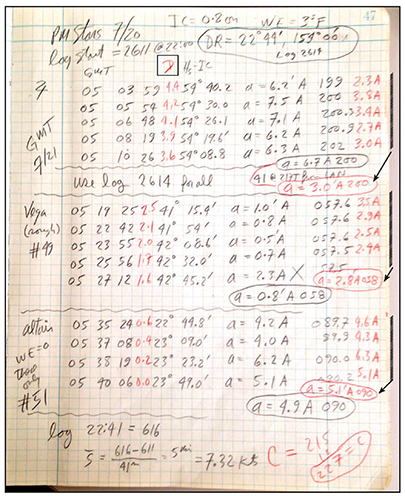 47
PM Stars 7/20 IC = 0.8 on WE = 3 sF
log start = 2611 @ 22:00 DR = 22° 44', 159° 00'
Log 2614
GMT D Hs-IC
05 03 59 4.4 59° 40.2 a = 6.2' A 199 2.3A
05 05 54 4.2 59° 30.0 a = 7.5 A 200 3.8A
05 06 48 4.1 59° 26.1 a = 7.1 A 200 3.4A
05 08 19 3.9 59° 19.6' a = 6.2 A 200 2.7A
05 10 26 3.6 59° 08.8 a = 6.3 A 202 3.0A
GMT 7/21
a = 6.7 A 200
use log 2614 for all
a = 3.0' A 200
Vega 05 19 25 2.5 41° 15.4' a = 1.0' A 057.6 3.5A
05 22 42 2.1 41° 54' a = 0.8 A 057.6 2.9A
#49 05 23 55 2.0 42° 08.6' a = 0.5' A 057.6 2.5A
05 25 56 1.7 42° 32.0' a = 0.7 A 057.5 2.4A
05 27 12 1.6 42° 45.2' a = 2.3 A X
a = 2.8A 058
a = 0.8' A 058
altair 05 35 24 0.6 22° 44.8' a = 4.2 A 089.7 4.6A
WE = 0 05 37 08 0.4 23° 09.0' a = 4.0 A 89.9 4.3A
05 38 19 0.2 23° 23.2' a = 6.2 A 090.0 6.3A
only 05 40 06 0.0 23° 49.0' a = 5.1 A 5.1A
#51
a = 5.1' A 090
a = 4.9 A 090
log 22:41 = 616
S = 616-611 / 41m = 7.32 kts
C = 215
227 = C